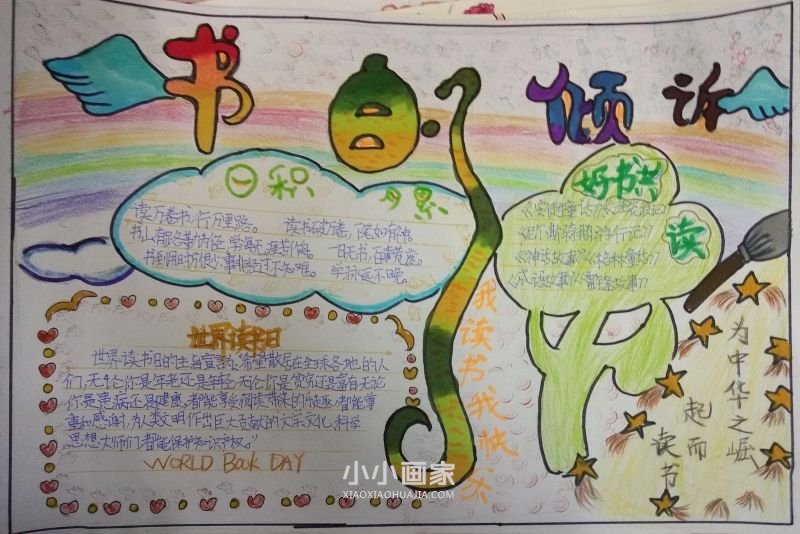 书 倾诉
日积月累
读万卷书,行万里路。 读书破万卷,
书山有路勤为径,学海无涯苦作舟。 一日无书,百事荒废。
书到用时方恨少,事非经过不知难。
好书共读
《安徒生童话》
《神话故事》《格林童话》
《成语故事》《雷锋故事》
世界读书日
世界读书日的主旨宣言为:希望散居在全球各地的人
们,无论你是年老还是年轻,无论你是贫穷还是富有,无论
你是患病还是健康,都能享受阅读带来的乐趣,都能尊
重和感谢为人类文明作出巨大贡献的文学、文化、科学
思想大师们,都能保护知识产权。”
WORLD BooK DAY
我读书我快乐
为中华之崛
起而
读书
小小画家
XIAOXIAOHUAJIA.COM